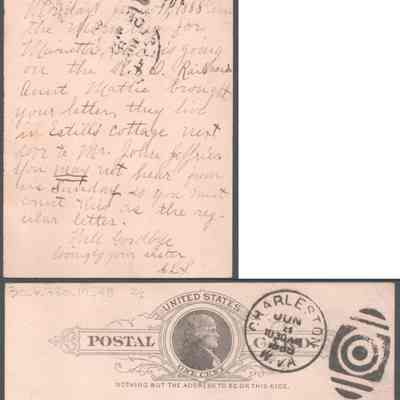 the
for
Marietta is going
on the R.R.
Aunt Mattie brought
your letter, they live
in Estills Cottage next
door to Mr. John Jeffries
You may not hear from
us Sunday so you must
count this as the reg-
ular letter.
Well Goodbye
your sister
UNITED STATES
POSTAL
ONE CENT
NOTHING BUT THE ADDRESS TO BE ON THIS SIDE.
CHARLESTON
JUN
21
1030AM
W.VA